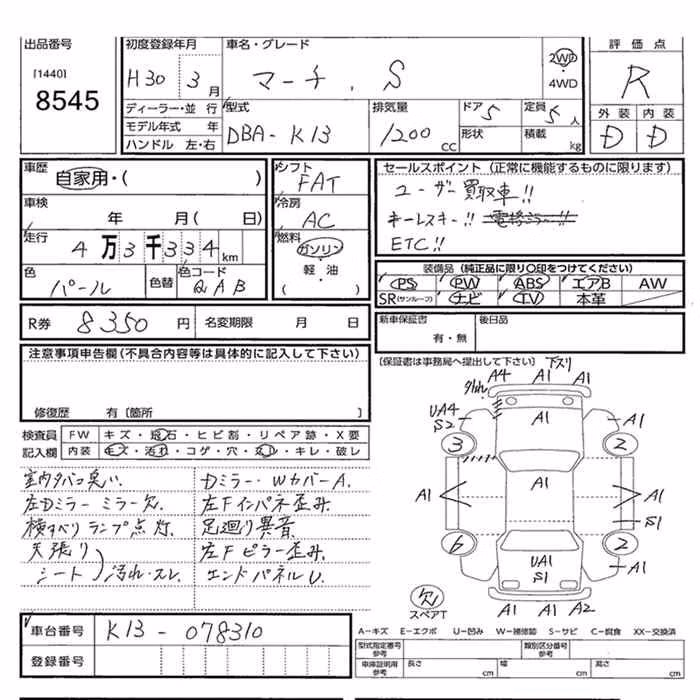 出品番号
[1440]
8545
初度登録年月
H30 3月
車名・グレード
マーチ . S
2WD
・
4WD
評価点
R
外装 内装
D D
ディーラー・並行
モデル年式 年
ハンドル 左・右
型式
DBA-K13
排気量
1200 cc
ドア 5
形状
定員 5 人
積載 kg
車歴
自家用・( )
車検
年 月( 日)
走行
4万3千334km
色
パール
色替
色コード
QAB
シフト
FAT
冷房
AC
燃料
ガソリン
・
軽・油
( )
セールスポイント (正常に機能するものに限ります)
ユーザー買取車!!
キーレスキー!! 電格ミラー!!
ETC!!
装備品 (純正品に限り○印をつけてください)
PS PW ABS エアB AW
SR(サンルーフ) ナビ TV 本革
R券 8350 円 名変期限 月 日
新車保証書
有・無
後日品
[保証書は事務局へ提出して下さい]
注意事項申告欄(不具合内容等は具体的に記入して下さい)
修復歴 有〔箇所 〕
検査員 FW キズ・飛石・ヒビ割・リペア跡・X要
記入欄 内装 キズ・汚れ・コゲ・穴・スレ・キレ・破レ
室内タバコ臭い.
左Dミラー ミラー欠.
横すべりランプ点灯.
天張り
シート 汚れ・スレ.
Dミラー・WカバーA.
左Fインパネ歪み.
足廻り異音.
左Fピラー歪み.
エンドパネルU.
下スリ
A4 A1 A1
クリわれ
UA4
S2
A1
A1
3 2
A1 A1
S1
6 2
A1
UA1
S1
欠
スペアT
A1 A1 A2
A-キズ E-エクボ U-凹み W-補修跡 S-サビ C-腐食 XX-交換済
車台番号 K13-078310
登録番号
型式指定番号
参考
類別区分番号
参考
車庫証明用
参考
長さ cm
幅 cm
高さ cm